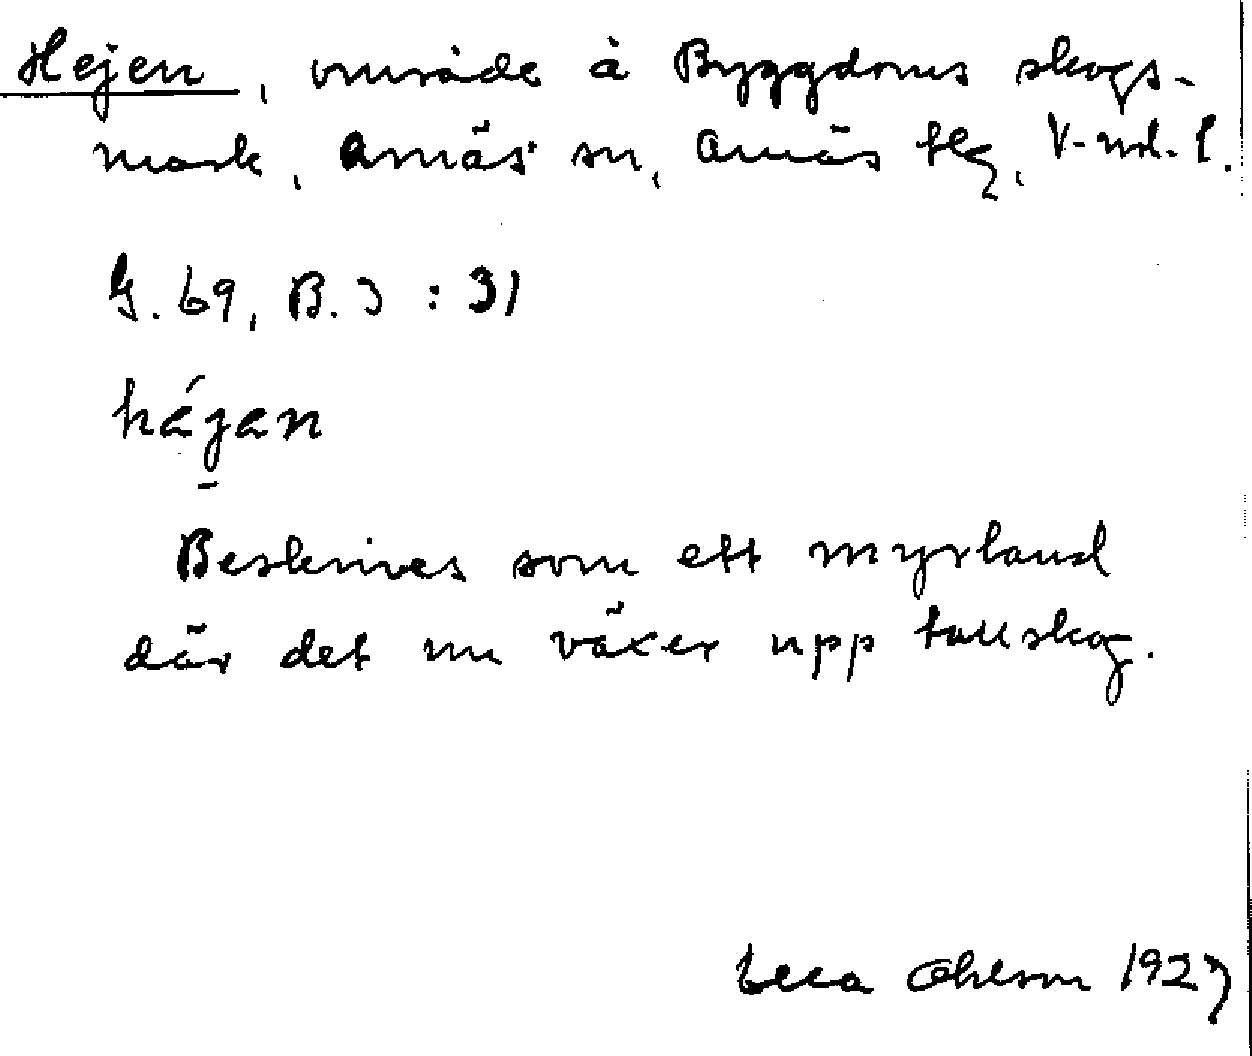 Hejen, område å Byggdoms skogs-
mark, Arnäs sn, Arnäs tlg, V-nrl. l.
G. 69, B. J : 31
häjan
Beskrives som ett myrland
där det nu växer upp tallskog.
Ohlson 1927